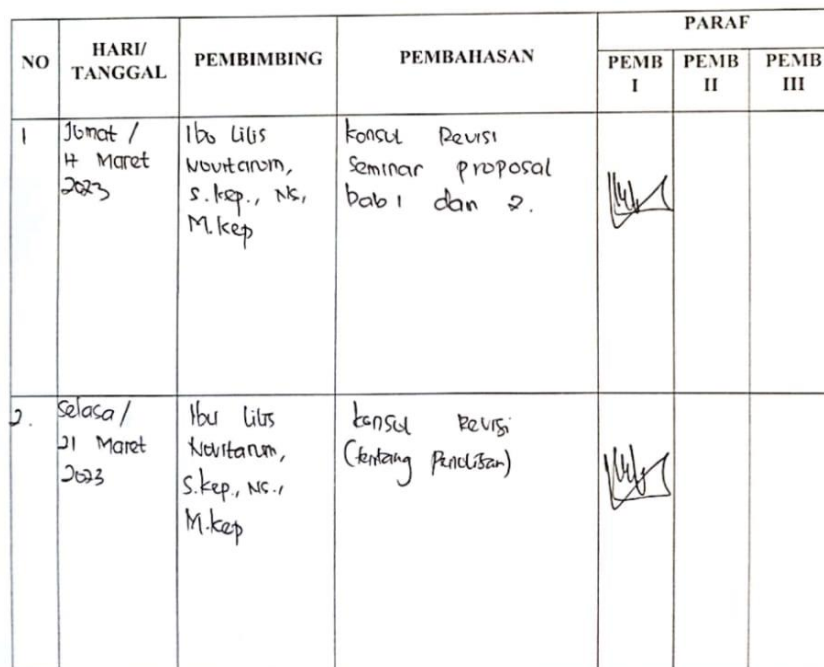 NO
HARI/
TANGGAL
PEMBIMBING
PEMBAHASAN
PARAF
PEMB
I
PEMB
II
PEMB
III
1
Jumat /
17 Maret
2023
Ibu Lilis
Novitarum,
S.kep., Ns,
M.kep
Konsul Revisi
Seminar proposal
bab 1 dan 2.
2.
Selasa /
21 Maret
2023
Ibu Lilis
Novitarum,
S.kep., Ns.,
M.kep
konsul Revisi
(tentang Penulisan)